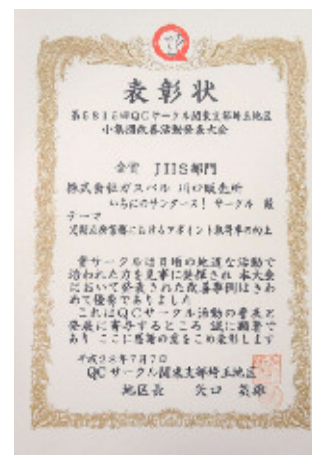 表彰状
第5815回QCサークル関東支部埼玉地区
小集団改善活動発表大会
金賞 JHS部門
株式会社ガスパル 川口販売所
いちにのサンダース! サークル 殿
テーマ
におけるアポイント取得率の向上
貴サークルは日頃の地道な活動で
培われた力を見事に発揮され 本大会
において発表された改善事例はきわ
めて優秀でありました
これはQCサークル活動の普及と
発展に寄与するところ 誠に顕著で
あり ここに感謝の意をこめ表彰します
平成28年7月7日
QCサークル関東支部埼玉地区
地区長 矢口